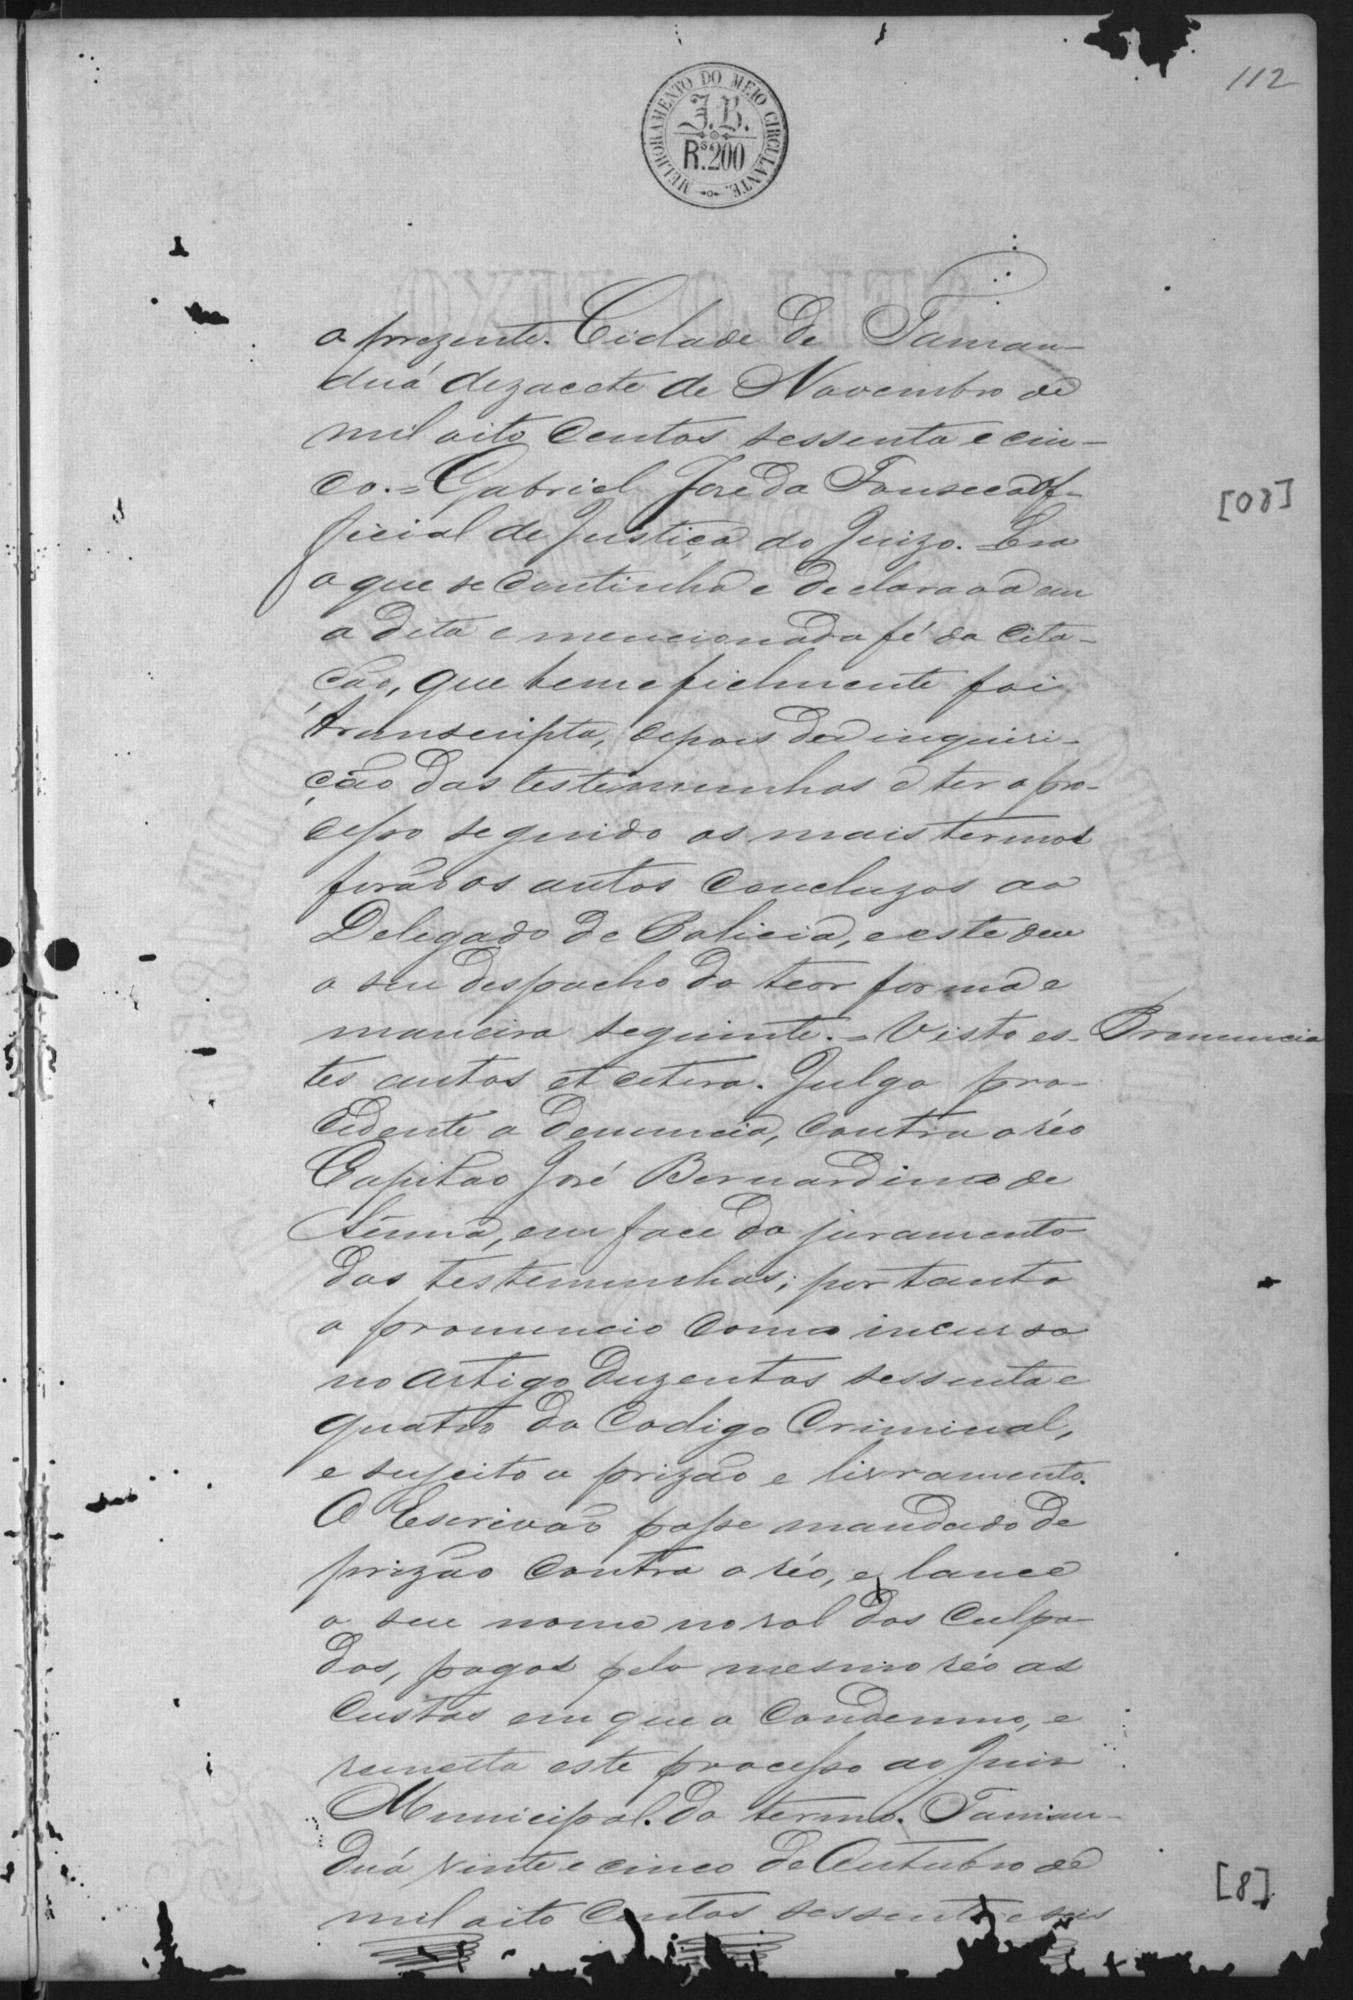 112
MELHORAMENTO DO MEIO CIRCULANTE.
J.B.
Rs.200
o prezente. Cidade de Taman-
duá dezacete de Novembro de
mil oito centos sessenta e cin-
co. = Gabriel José da Fonseca of-
ficial de Justiça do Juizo. = Era
o que se continha e declarava em
a dita e mencionada fé da cita-
ção, que bem e fielmente foi
transcripta, depois da inquiri-
ção das testemunhas e ter o pro-
cesso seguido os mais termos
forão os autos concluzos ao
Delegado de Policia, e este deu
o seu despacho do teor forma e
maneira seguinte. = Visto es-
Pronuncia
tes autos et cetera. Julgo pro-
cedente a denuncia, contra o réo
Capitão José Bernardino de
Senna, em face do juramento
das testemunhas; por tanto
o pronuncio como incurso
no artigo duzentos sessenta e
quatro do Codigo Criminal,
e sujeito a prizão e livramento.
O Escrivão passe mandado de
prizão contra o réo, e lance
o seu nome no rol dos culpa-
dos, pagas pelo mesmo réo as
custas em que o condemno, e
remetta este processo ao Juiz
Municipal do termo. Taman-
duá vinte e cinco de Outubro de
mil oito centos sessenta e seis
[08]
[8]